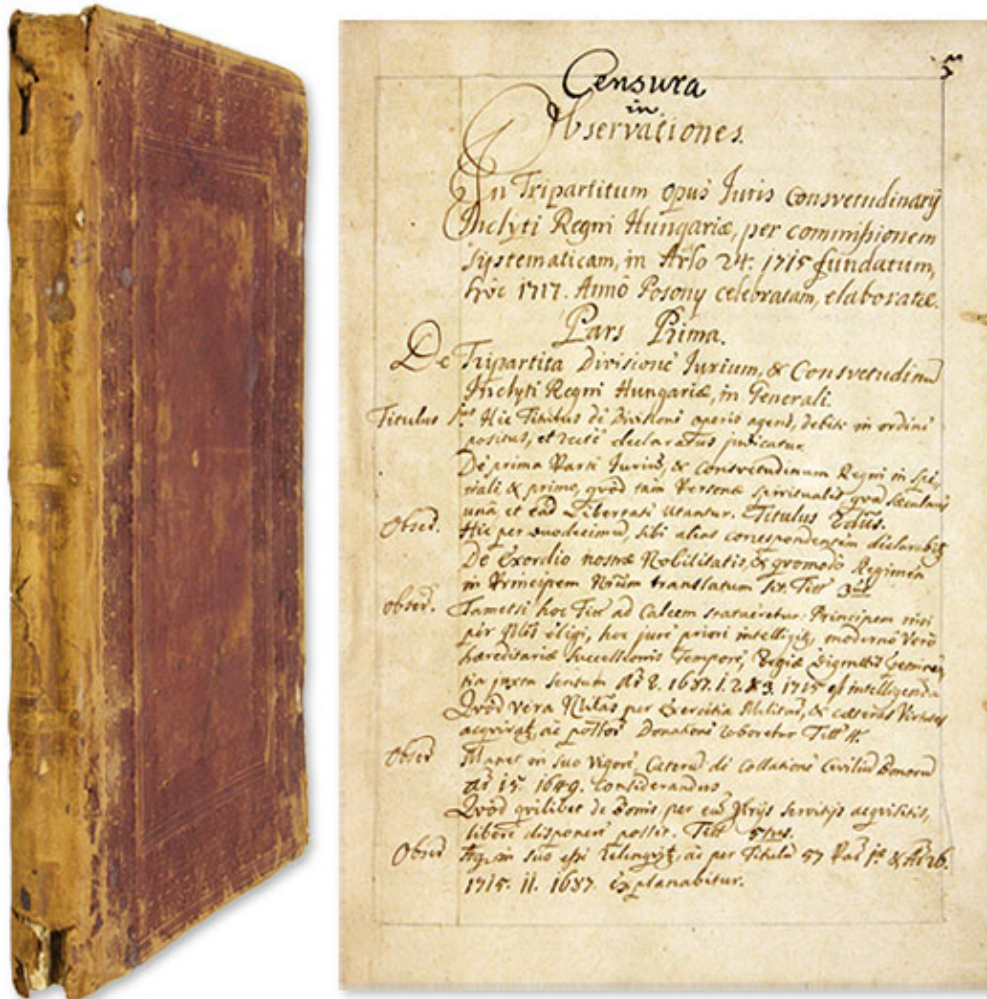 5
Censura
in
Observationes.
In Tripartitum opus Juris Consvetudinarij
Inclyti Regni Hungariæ, per commissionem
systematicam, in Arlo 24. 1715 fundatum,
hoc 1717. Anno Posony celebratam, elaboratæ.
Pars Prima.
De Tripartita Divisione Jurium, & Consvetudinu
Inclyti Regni Hungariæ, in Generali.
Titulus 1us Hic Titulus de Divisione operis agens, debite in ordine
positus, et recte declaratus judicatur
De prima Parte Jurium, & Consvetudinum Regni in spe,
ciali, & primo, quod tam Personæ spirituales quam sæculares
una et ead Libertate utantur. Titulus 2dus.
Obser. Hic per duodecimum, sibi alias correspondentem declarabitz
De Exordio nostræ Nobilitatis, & quomodo Regimen
in Principem Nrum translatum sit. Titt 3us
obser. Tametsi hoc Titt ad Calcem statueretur. Principem nisi
per Nbles eligi, hoc jure priori intelligitz, moderno Vero
hæreditariæ Successionis Tempore, Regiæ Dignittis
tia juxta sensum Ar 2. 1687. 1. 2. & 3. 1715 e intelligenda
Quod vera Nbltas per Exercitia Militaria, & cæteras Virtutes
acquiratz, ac post Donatione roboretur Titt 4.
Obser Manet in suo Vigore, Caterum de collatione Civilium Bonorum
Ar 15. 1649. considerandus
Quod quilibet de Bonis per eum servitijs acquisitis,
libere disponere possit. Titt 5tus.
Obser in suo esse relinquitz, ac per Titulum 57 Par 1æ & Ar 26.
1715. 11. 1687 explanabitur.